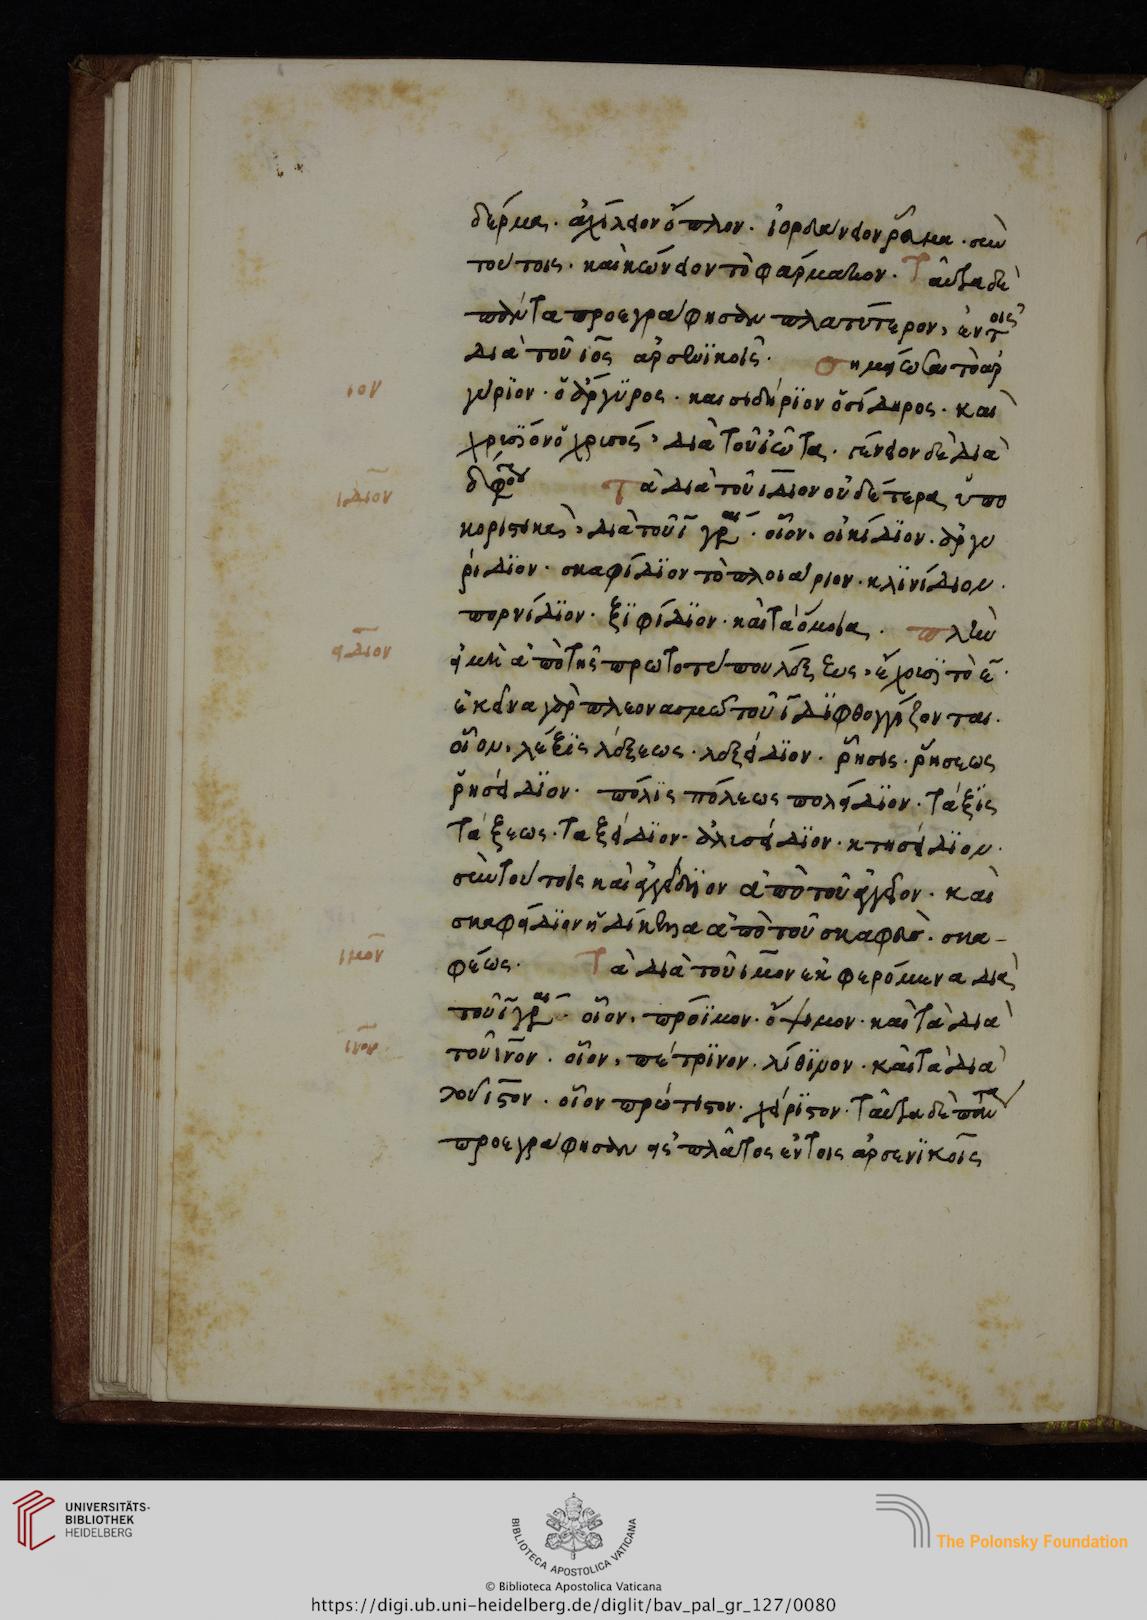 δέρμα. ἀχίλειον ὅπλον. ἰορδάνειον ῥεῦμα. σὺν
τούτοις. καὶ κώνειον τὸ φάρμακον. Ταῦτα δὲ
πάντα προεγράφησαν πλατύτερον, ἐν τοῖς
διὰ τοῦ ιος ἀρσενϊκοῖς. Σημείωσαι τὸ ἀρ
ιον
γύρϊον. ὁ ἄργυρος. καὶ σιδήρϊον ὁ σίδηρος. καὶ
χρυσΐον ὁ χρυσός, διὰ τοῦ ἰῶτα. διὰ
ιδιον
Τὰ διὰ τοῦ ιδιον οὐδέτερα ὑπο
κοριστικὰ, διὰ τοῦ ι γρ. οἷον, οἰκίδϊον. ἀργυ
ρίδϊον. σκαφίδϊον τὸ πλοιάριον. κλϊνίδιον.
πορνίδϊον. ξϊφίδϊον. καὶ τὰ ὅμοια. πλὴν
ειδιον
εἰ μὴ ἀπὸ τῆς πρωτοτύπου λέξεως, ἔχοισϊ τὸ ε.
ἐκεῖνα γὰρ πλεονασμῶ τοῦ ι δϊφθογγίζονται.
οἷον, λέξϊς λέξεως. λεξείδϊον. ῥῆσις. ῥήσεως
ῥησείδϊον. πόλϊς πόλεως πολείδϊον. τάξϊς
τάξεως. ταξείδϊον. ἁλισείδϊον. κτησείδϊον.
σὺν τούτοις καὶ ἀπὸ τοῦ καὶ
σκαφείδϊον ἀπὸ τοῦ σκαφεὺς. σκα-
ιμον
φέως. Τὰ διὰ τοῦ ιμον ἐκφερόμενα διὰ
τοῦ ι γρ. οἷον, πρόϊμον. ὄψιμον. καὶ τὰ διὰ
ινον
τοῦ ινον. οἷον, πέτρϊνον. λίθϊνον. καὶ τὰ διὰ
τοῦ ιστον. οἷον πρώτιστον. χείρϊστον. ταῦτα δὲ πάντα
προεγράφησαν εἰς πλάτος ἐν τοῖς ἀρσενϊκοῖς
UNIVERSITÄTS-
BIBLIOTHEK
HEIDELBERG
BIBLIOTECA APOSTOLICA VATICANA
The Polonsky Foundation
© Biblioteca Apostolica Vaticana
https://digi.ub.uni-heidelberg.de/diglit/bav_pal_gr_127/0080